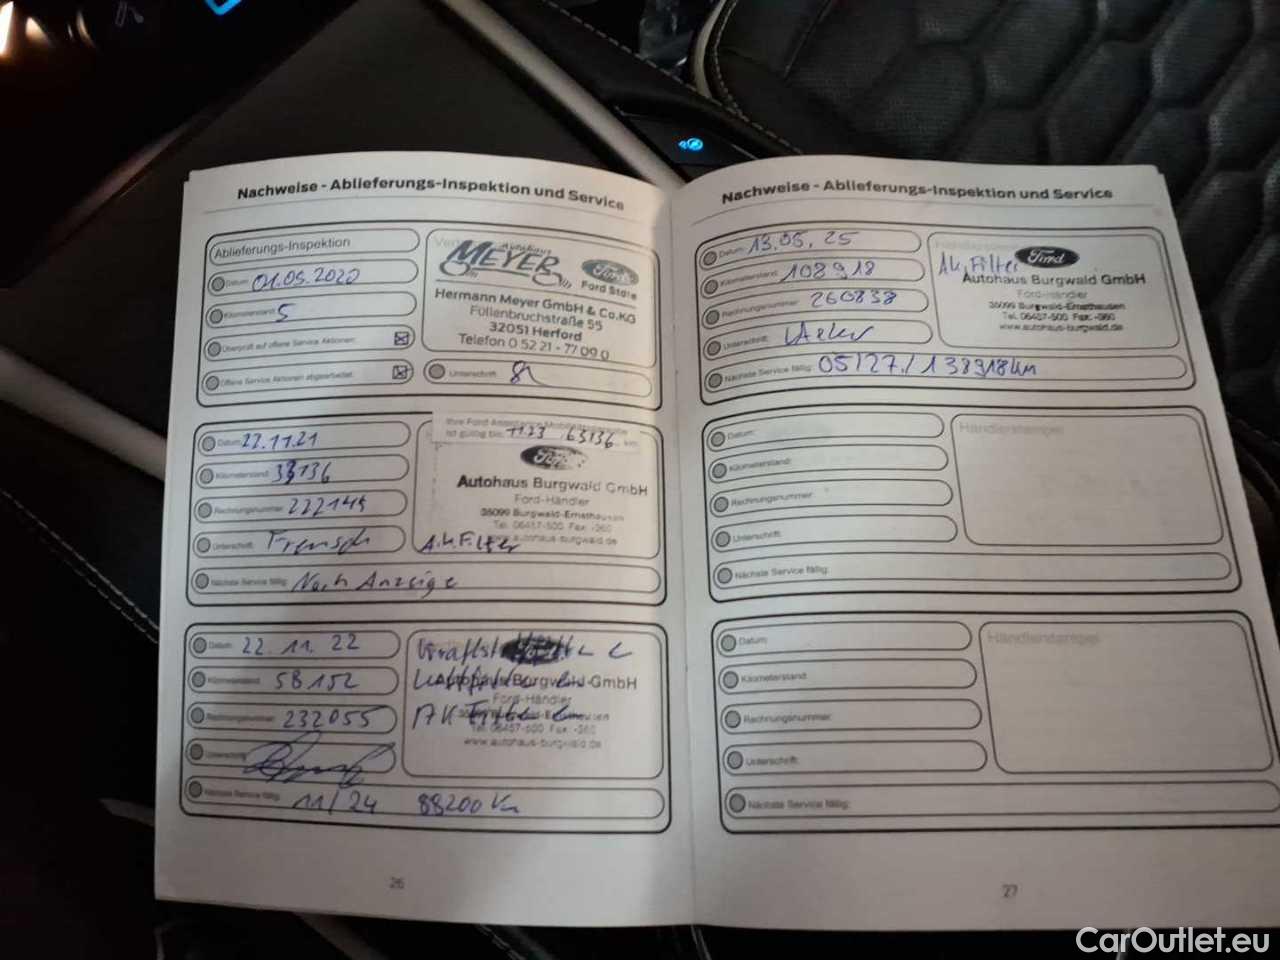 Nachweise - Ablieferungs-Inspektion und Service
Ablieferungs-Inspektion
Datum: 01.09.2020
Kilometerstand: 5
Überprüft auf offene Service Aktionen:
Offene Service Aktionen abgearbeitet:
Autohaus
MEYER
Ford Store
Hermann Meyer GmbH & Co.KG
Füllenbruchstraße 55
32051 Herford
Telefon 0 52 21 - 77 09 0
Unterschrift:
Datum: 22.11.21
Kilometerstand: 33136
Rechnungsnummer: 222145
Unterschrift:
Nächste Service fällig: Nach Anzeige
Ihre Ford Assistance Mobilitätsgarantie
ist gültig bis: 11.23 63136 km
Ford
Autohaus Burgwald GmbH
Ford-Händler
35099 Burgwald-Ernsthausen
Tel. 06457-500 Fax: -360
www.autohaus-burgwald.de
A.K.Filter
Datum: 22.11.22
Kilometerstand: 58152
Rechnungsnummer: 232055
Unterschrift:
Nächste Service fällig: 11/24 88200 Km
Autohaus Burgwald GmbH
Ford-Händler
35099 Burgwald-Ernsthausen
Tel. 06457-500 Fax: -360
www.autohaus-burgwald.de
26
Nachweise - Ablieferungs-Inspektion und Service
Datum: 13.05.25
Kilometerstand: 108918
Rechnungsnummer: 260838
Unterschrift:
Nächste Service fällig: 05/27 / 138918 km
Ak. Filter
Ford
Autohaus Burgwald GmbH
Ford-Händler
35099 Burgwald-Ernsthausen
Tel. 06457-500 Fax: -360
www.autohaus-burgwald.de
Datum:
Kilometerstand:
Rechnungsnummer:
Unterschrift:
Nächste Service fällig:
Händlerstempel
Datum:
Kilometerstand:
Rechnungsnummer:
Unterschrift:
Nächste Service fällig:
Händlerstempel
27
CarOutlet.eu